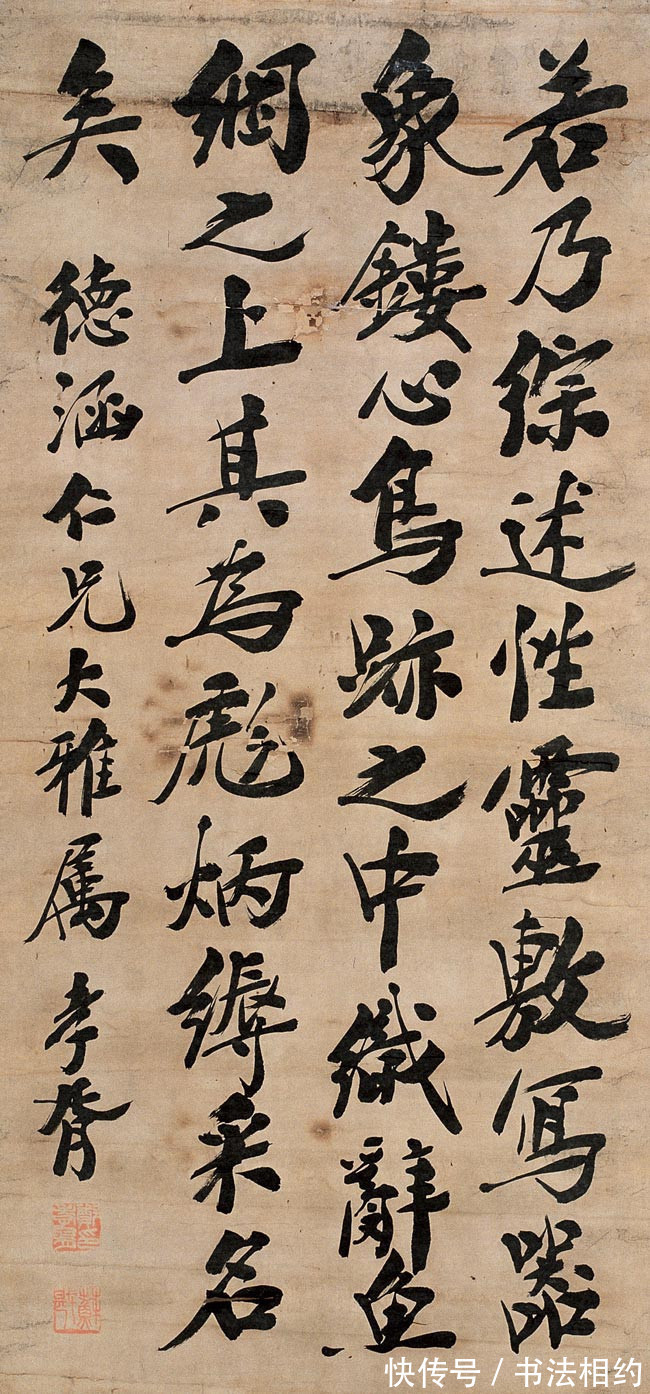 若乃綜述性靈敷寫器
象鏤心鳥跡之中織辭魚
網之上其為彪炳縟采名
矣
德涵仁兄大雅属 孝胥
快传号 / 书法相约